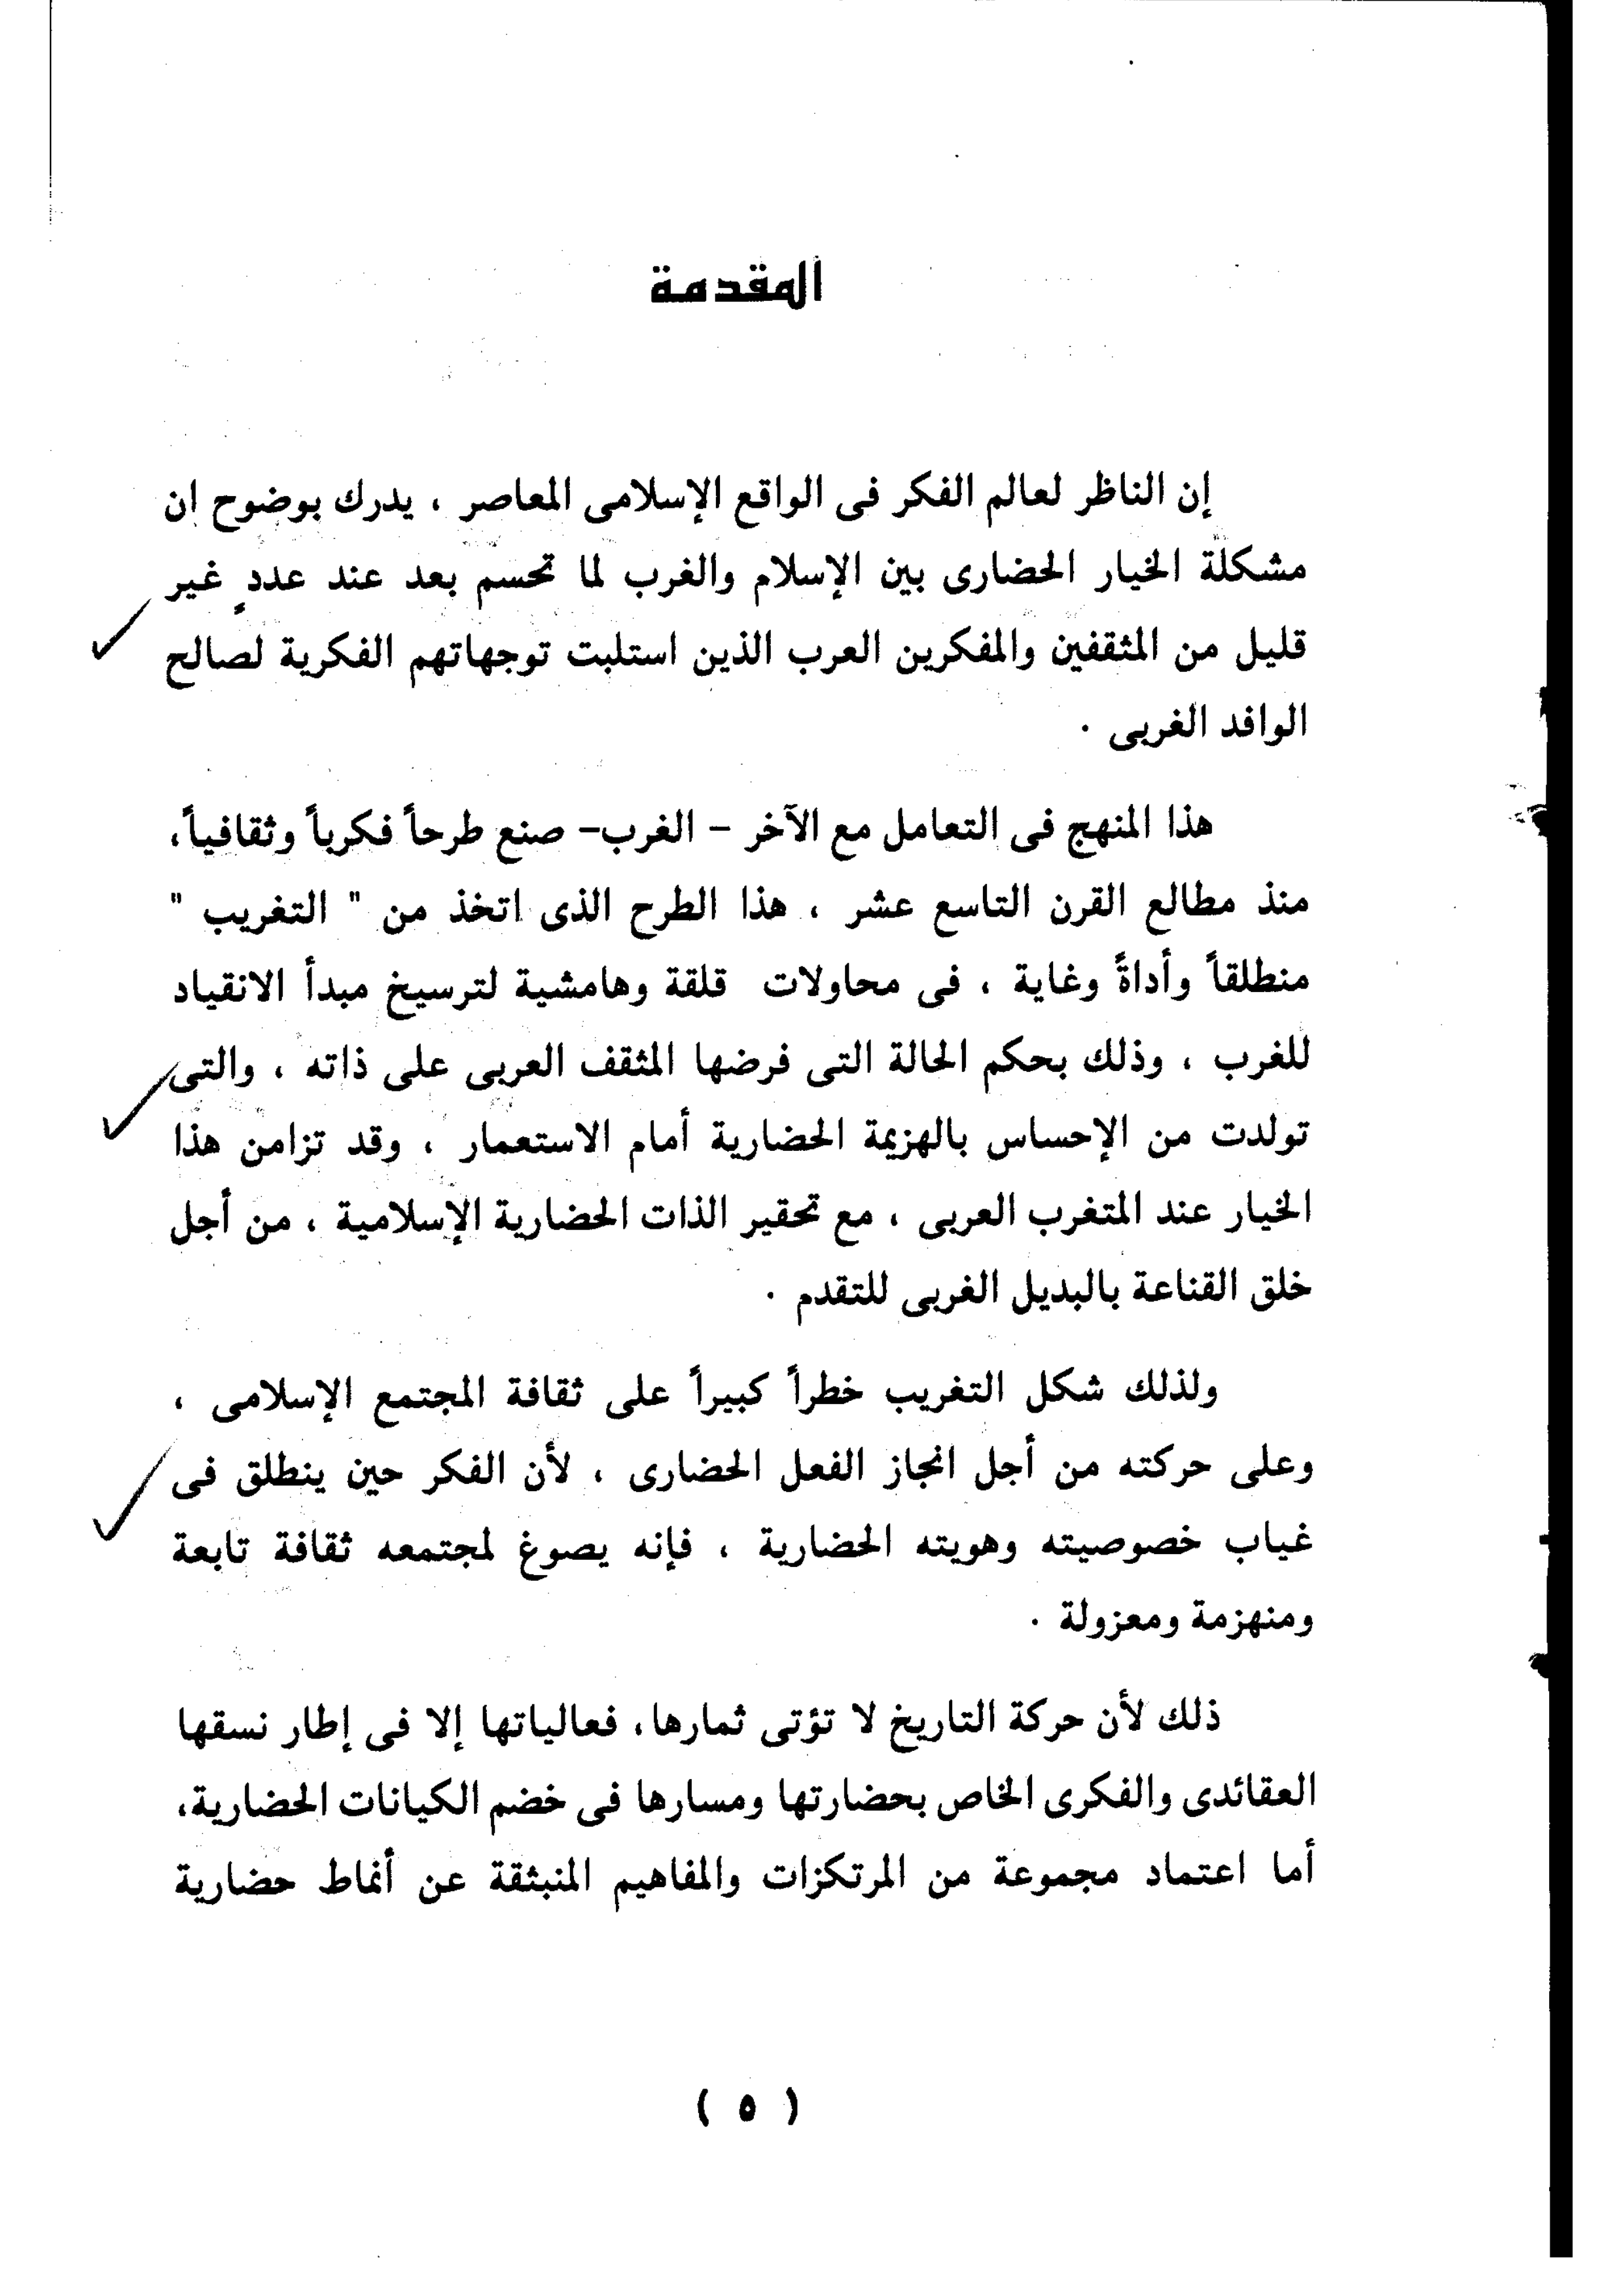 المقدمة
إن الناظر لعالم الفكر فى الواقع الإسلامى المعاصر ، يدرك بوضوح ان
مشكلة الخيار الحضارى بين الإسلام والغرب لما تحسم بعد عند عددٍ غير
قليل من المثقفين والمفكرين العرب الذين استلبت توجهاتهم الفكرية لصالح
الوافد الغربى .
هذا المنهج فى التعامل مع الآخر - الغرب- صنع طرحاً فكرياً وثقافياً،
منذ مطالع القرن التاسع عشر ، هذا الطرح الذى اتخذ من " التغريب "
منطلقاً وأداةً وغاية ، فى محاولات قلقة وهامشية لترسيخ مبدأ الانقياد
للغرب ، وذلك بحكم الحالة التى فرضها المثقف العربى على ذاته ، والتى
تولدت من الإحساس بالهزيمة الحضارية أمام الاستعمار ، وقد تزامن هذا
الخيار عند المتغرب العربى ، مع تحقير الذات الحضارية الإسلامية ، من أجل
خلق القناعة بالبديل الغربى للتقدم .
ولذلك شكل التغريب خطراً كبيراً على ثقافة المجتمع الإسلامى ،
وعلى حركته من أجل انجاز الفعل الحضارى ، لأن الفكر حين ينطلق فى
غياب خصوصيته وهويته الحضارية ، فإنه يصوغ لمجتمعه ثقافة تابعة
ومنهزمة ومعزولة .
ذلك لأن حركة التاريخ لا تؤتى ثمارها، فعالياتها إلا فى إطار نسقها
العقائدى والفكرى الخاص بحضارتها ومسارها فى خضم الكيانات الحضارية،
أما اعتماد مجموعة من المرتكزات والمفاهيم المنبثقة عن أنماط حضارية
( ٥ )